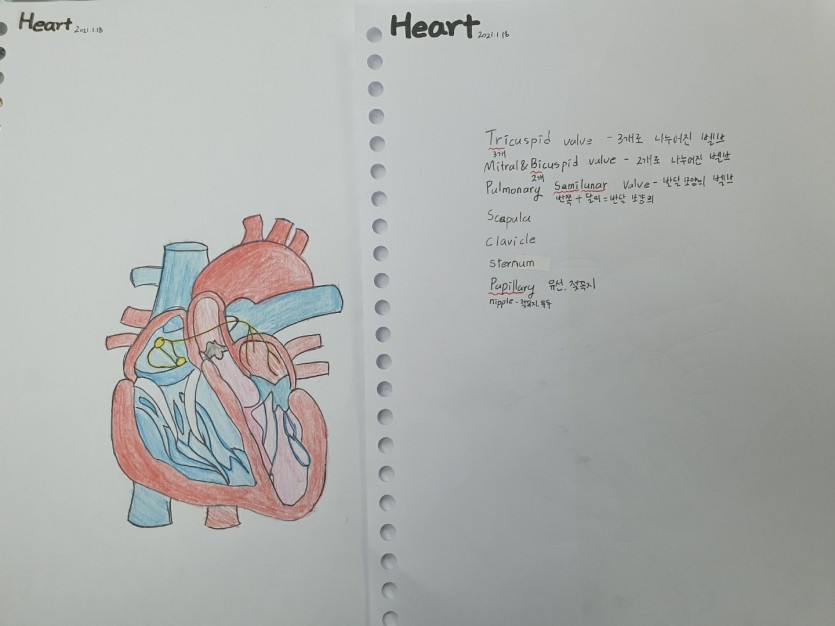 Heart 2021.1.18
Heart 2021.1.18
Tricuspid valve - 3개로 나누어진 벨브
3개
Mitral&Bicuspid valve - 2개로 나누어진 벨브
2개
Pulmonary Semilunar Valve - 반달 모양의 벨브
반쪽 + 달의 = 반달 모양의
Scapula
Clavicle
Sternum
Papillary 유선, 젖꼭지
nipple - 젖꼭지,